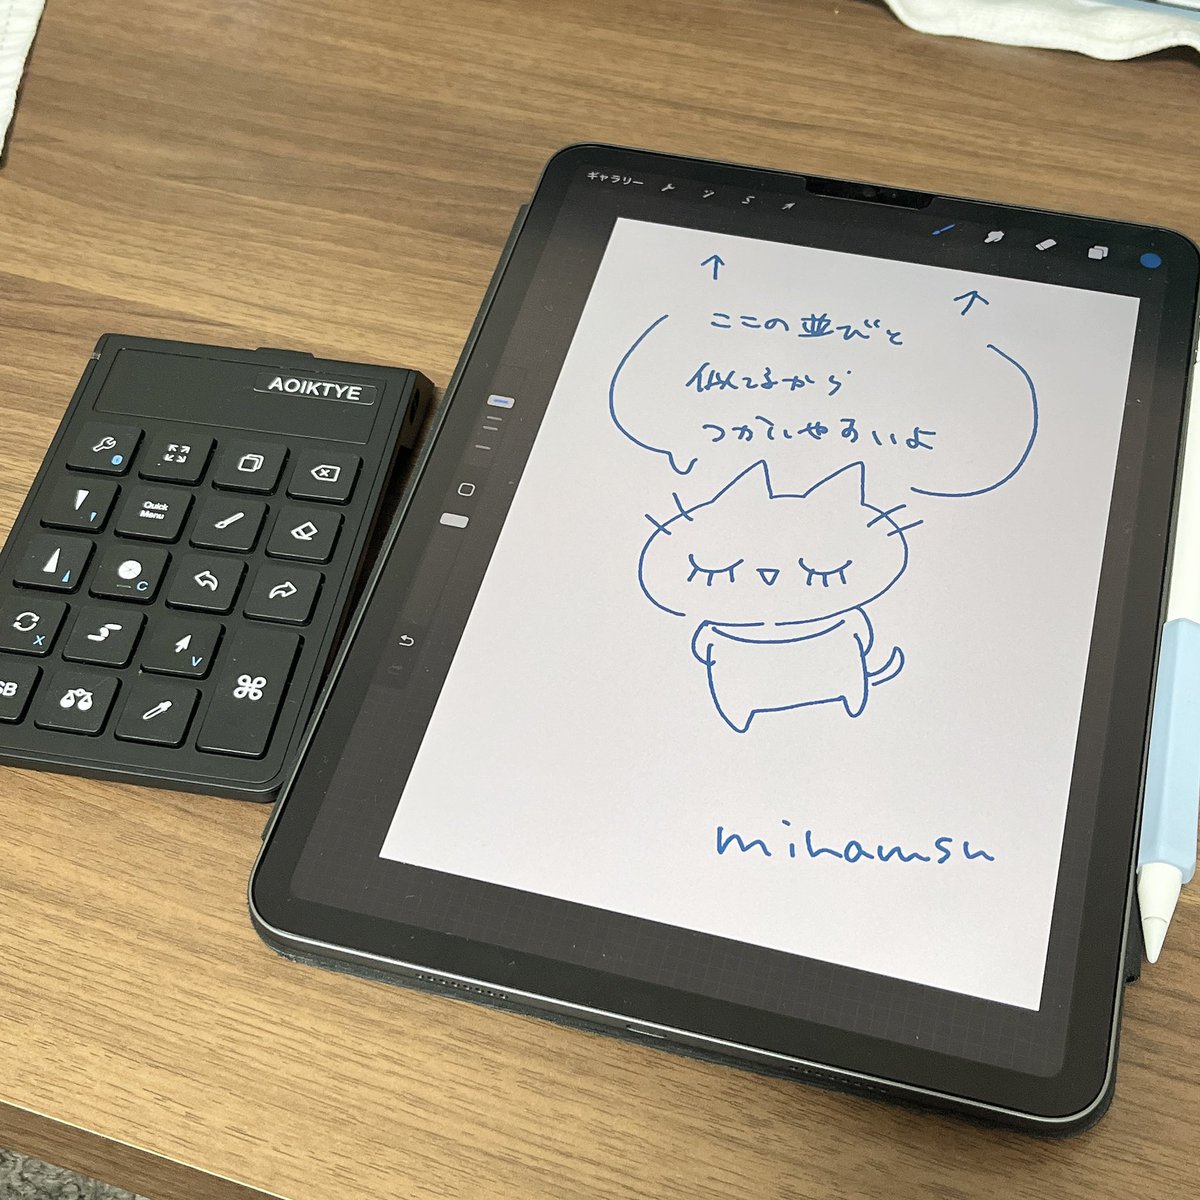 AOIKTYE
Quick
Menu
C
X
V
SB
ギャラリー
ここの並びと
似てるから
つかいやすいよ
minamsu